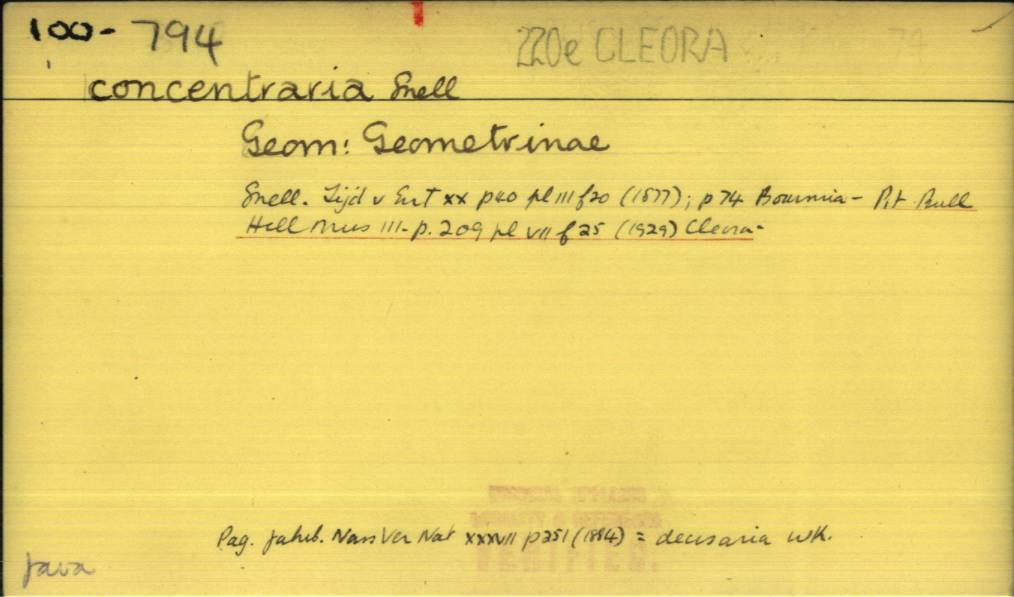 100- 794
220e CLEORA
concentraria Snell
Geom: Geometrinae
Snell. Tijd v Ent xx p40 pl III f20 (1877); p 74 Boarmia - Prt Bull
Hill Mus III - p. 209 pl VII f 25 (1929) Cleora -
Pag. Jahrb. Nass Ver Nat xxxvII p251 (1884) = decisaria wk.
Java